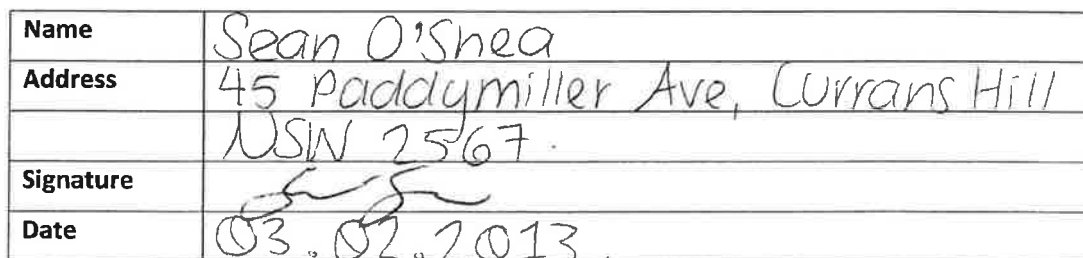 Name Sean O'Shea
Address 45 Paddymiller Ave, Currans Hill
NSW 2567.
Signature
Date 03.02.2013.